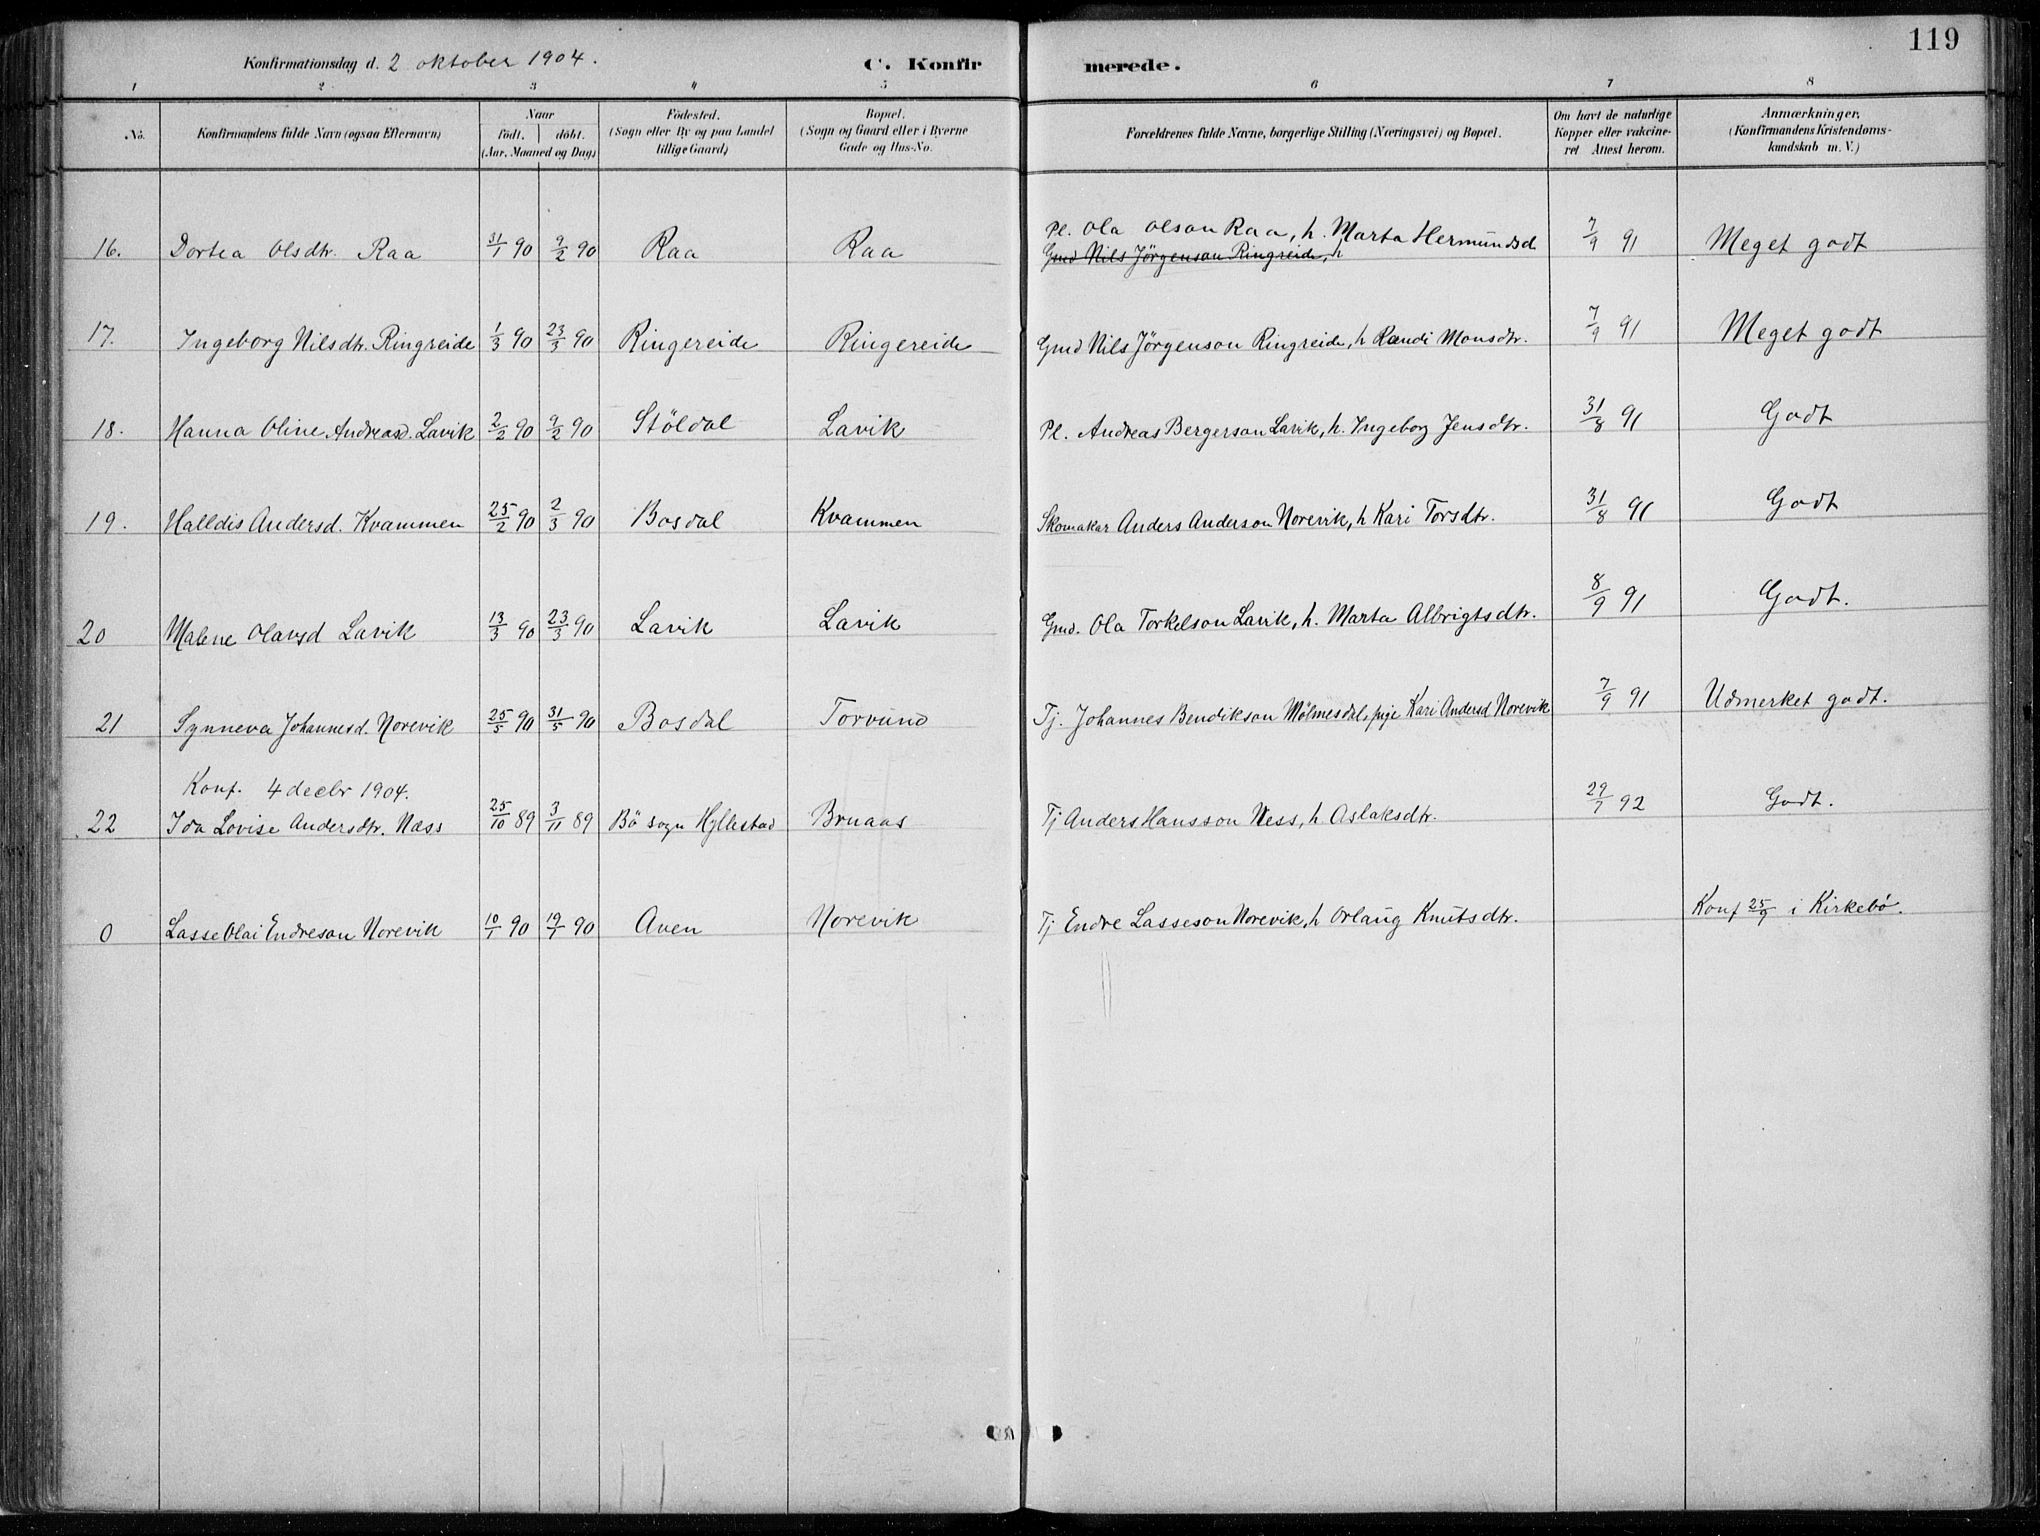 119
Konfirmationsdag d. 2 oktober 1904. C. Konfirmerede.
1 2 3 4 5 6 7 8
No. Konfirmandens fulde Navn (ogsaa Efternavn) Naar födt. döbt. (Aar, Maaned og Dag) Födested. (Sogn eller By og paa Landet tillige Gaard) Bopæl. (Sogn og Gaard eller i Byerne Gade og Hus-No. Forældrenes fulde Navne, borgerlige Stilling (Næringsvei) og Bopæl. Om havt de naturlige Kopper eller vakcineret Attest herom. Anmærkninger, (Konfirmandens Kristendomskundskab m. V.)
Pl. Ola Olson Raa, h. Marta Hermundsd.
16. Dortea Olsdtr. Raa 31/1 90 9/2 90 Raa Raa Gmd Nils Jörgenson Ringreide, h 7/9 91 Meget godt
17. Ingeborg Nilsdtr. Ringreide 1/3 90 23/3 90 Ringereide Ringereide Gmd Nils Jörgenson Ringreide, h Randi Monsdtr. 7/9 91 Meget godt
18. Hanna Oline Andreasd. Lavik 2/2 90 9/2 90 Stöldal Lavik Pl. Andreas Bergerson Lavik, h. Ingeborg Jensdtr. 31/8 91 Godt
19. Halldis Andersd. Kvammen 25/2 90 2/3 90 Bosdal Kvammen Skomakar Anders Anderson Norevik, h Kari Torsdtr. 31/8 91 Godt
20 Malene Olavsd Lavik 13/3 90 23/3 90 Lavik Lavik Gmd. Ola Torkelson Lavik, h. Marta Albrigtsdtr. 8/9 91 Godt.
21 Synneva Johannesd. Norevik 25/5 90 31/5 90 Bosdal Torvund Tj. Johannes Bendikson Mölmesdal, pige Kari Andersd Norevik 7/9 91 Udmerket godt.
Konf. 4 decbr 1904.
22 Ida Lovise Andersdtr. Næss 25/10 89 3/11 89 Bö sogn Hyllestad Bruaas Tj Anders Hansson Ness, h Oslaksdtr. 29/7 92 Godt.
0 Lasse Olai Endreson Norevik 10/1 90 19/1 90 Aven Norevik Tj Endre Lasseson Norevik, h Orlaug Knutsdtr. Konf 25/9 i Kirkebö.